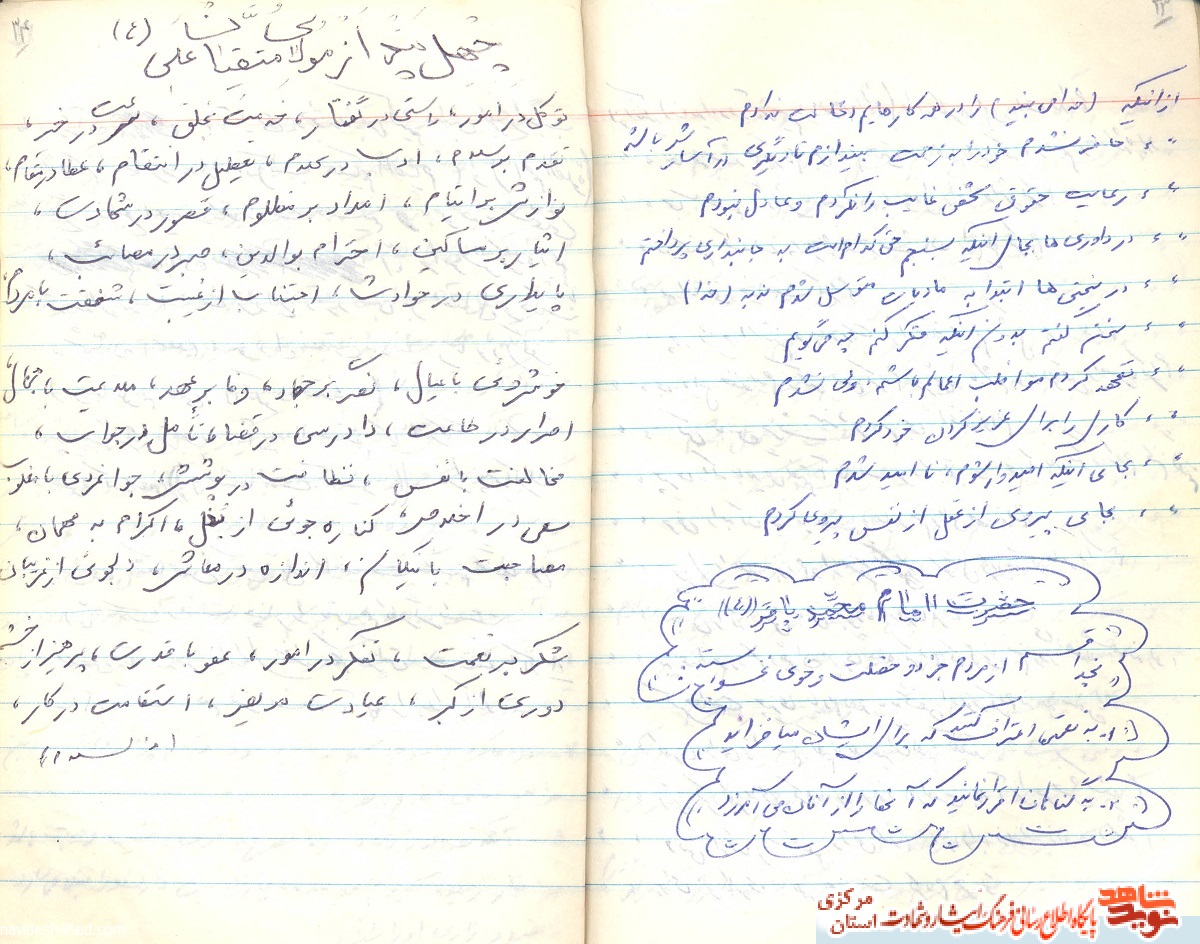 از اینکه (خدا می بیند) را در همه کارهایم دخالت ندادم
" " حاضر نشدم خود را به زحمت بیندازم تا دیگری در آسایش باشد
" " رعایت حقوق شخص غایب را نکردم و عادل نبودم
" " در داوری ها بجای اینکه بسنجم حق کدام است به جانبداری پرداختم
" " در سختی ها ابتدا به مادیات متوسل شدم نه به (خدا)
" " سخن گفتم بدون اینکه فکر کنم چه می گویم
" " تعهد کردم مواظب اعمالم باشم، ولی نشدم
" " کار را برای عزیز کردن خود کردم
" " بجای اینکه امیدوار شوم، نا امید شدم
" " بجای پیروی از عقل از نفس پیروی کردم
حضرت امام محمد باقر ((ع))
بخدا قسم از مردم جز دو خصلت و خوی نخواسته
۱- به نعمتها اعتراف کنند که برای ایشان میافزاید
۲- به گناهان اقرار نمایند که آنها را از آنان می آمرزد
۳۴
چهل پند از مولا متقیان علی (ع)
توکل در امور، راستی در گفتار، خدمت بخلق، سرعت در خیر،
تقدم بر سلام، ادب در کلام، تعطیل در انتقام، عطا در مقام،
نوازش بر ایتام، امداد بر مظلوم، حضور در شهادت،
ایثار بر مساکین، احترام بوالدین، صبر در مصائب،
پایداری در حوادث، اجتناب از غیبت، شفقت با مردم،
خوشروئی با عیال، نصر بر جهاد، وفا بر عهد، ملایمت با جهال،
اصرار در طاعت، دادرسی در قضا، تأمل در جواب،
مخالفت با نفس، نظافت در پوشش، جوانمردی با
سعی در اخلاص، کناره جوئی از بخل، اکرام به مهمان،
مصاحبت با نیکان، اندازه در معاش، دلجوئی از غریبان
شکر بر نعمت، تفکر در امور، عفو با قدرت، پرهیز از خشم
دوری از کبر، عیادت مریض، استقامت در کار،
نوید شاهد
پایگاه اطلاع رسانی فرهنگ ایثار و شهادت
استان مرکزی